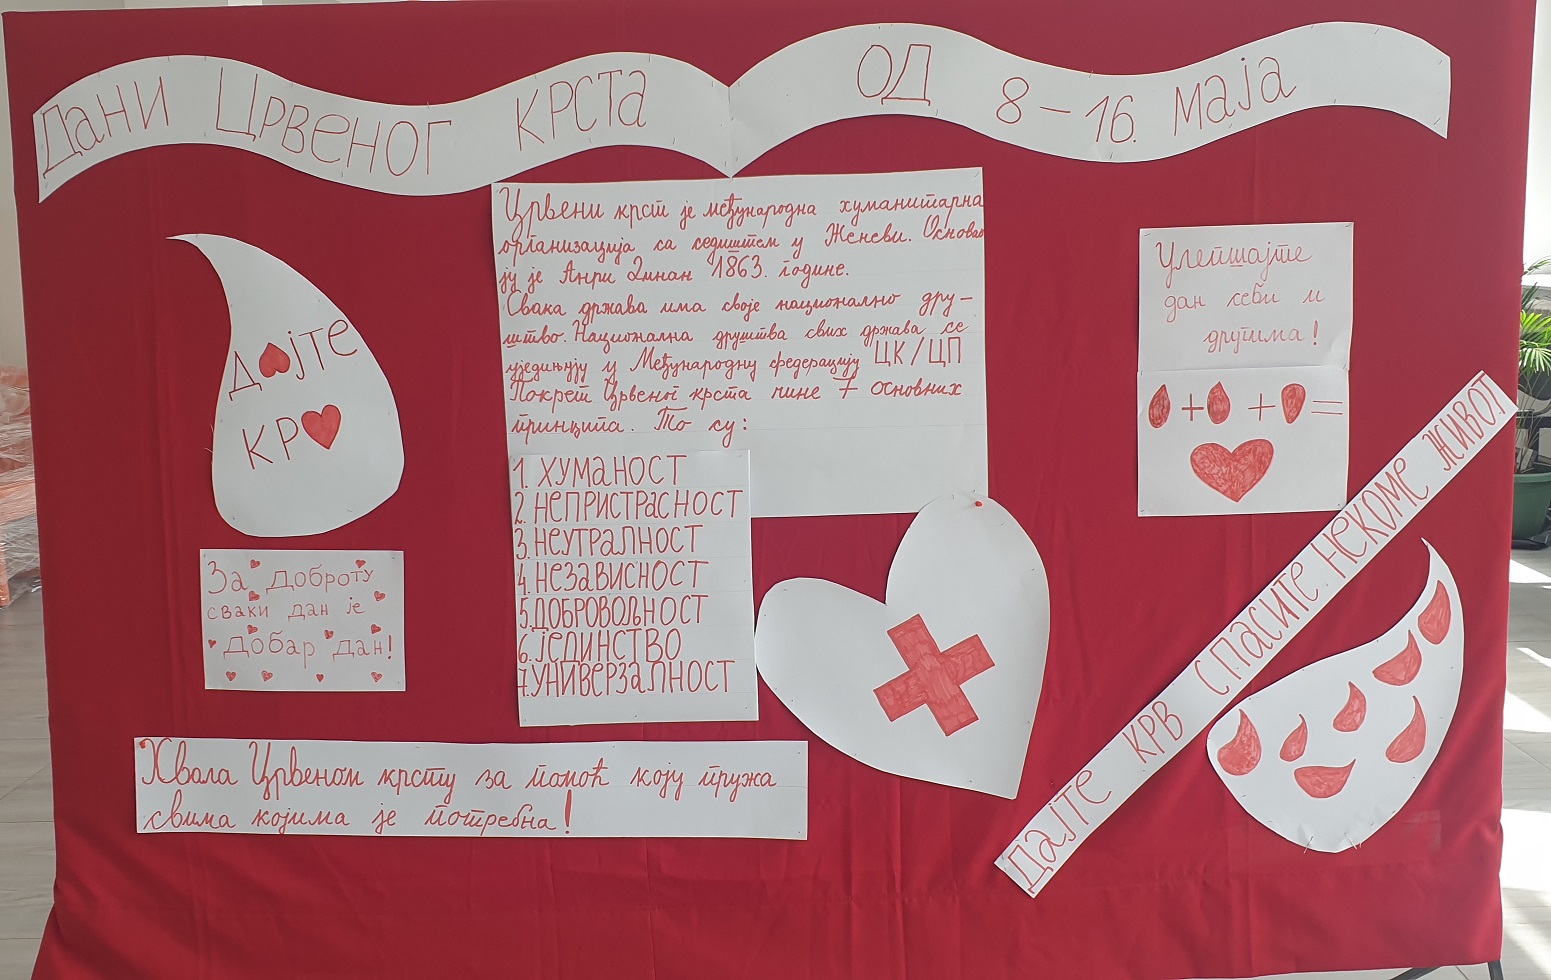 Дани Црвеног крста од 8-16. маја
Црвени крст је међународна хуманитарна
организација са седиштем у Женеви. Основао
ју је Анри Динан 1863. године.
Свака држава има своје национално дру-
штво. Национална друштва свих држава се
уједињују у Међународну федерацију ЦК/ЦП
Покрет Црвеног крста чине 7 основних
принципа. То су:
1. ХУМАНОСТ
2. НЕПРИСТРАСНОСТ
3. НЕУТРАЛНОСТ
4. НЕЗАВИСНОСТ
5. ДОБРОВОЉНОСТ
6. ЈЕДИНСТВО
7. УНИВЕРЗАЛНОСТ
Д♥ЈТЕ
КР♥
За доброту
сваки дан је
Добар дан!
Хвала Црвеном крсту за помоћ коју пружа
свима којима је потребна!
Улепшајте
дан себи и
другима!
+ + =
ДАЈТЕ КРВ СПАСИТЕ НЕКОМЕ ЖИВОТ